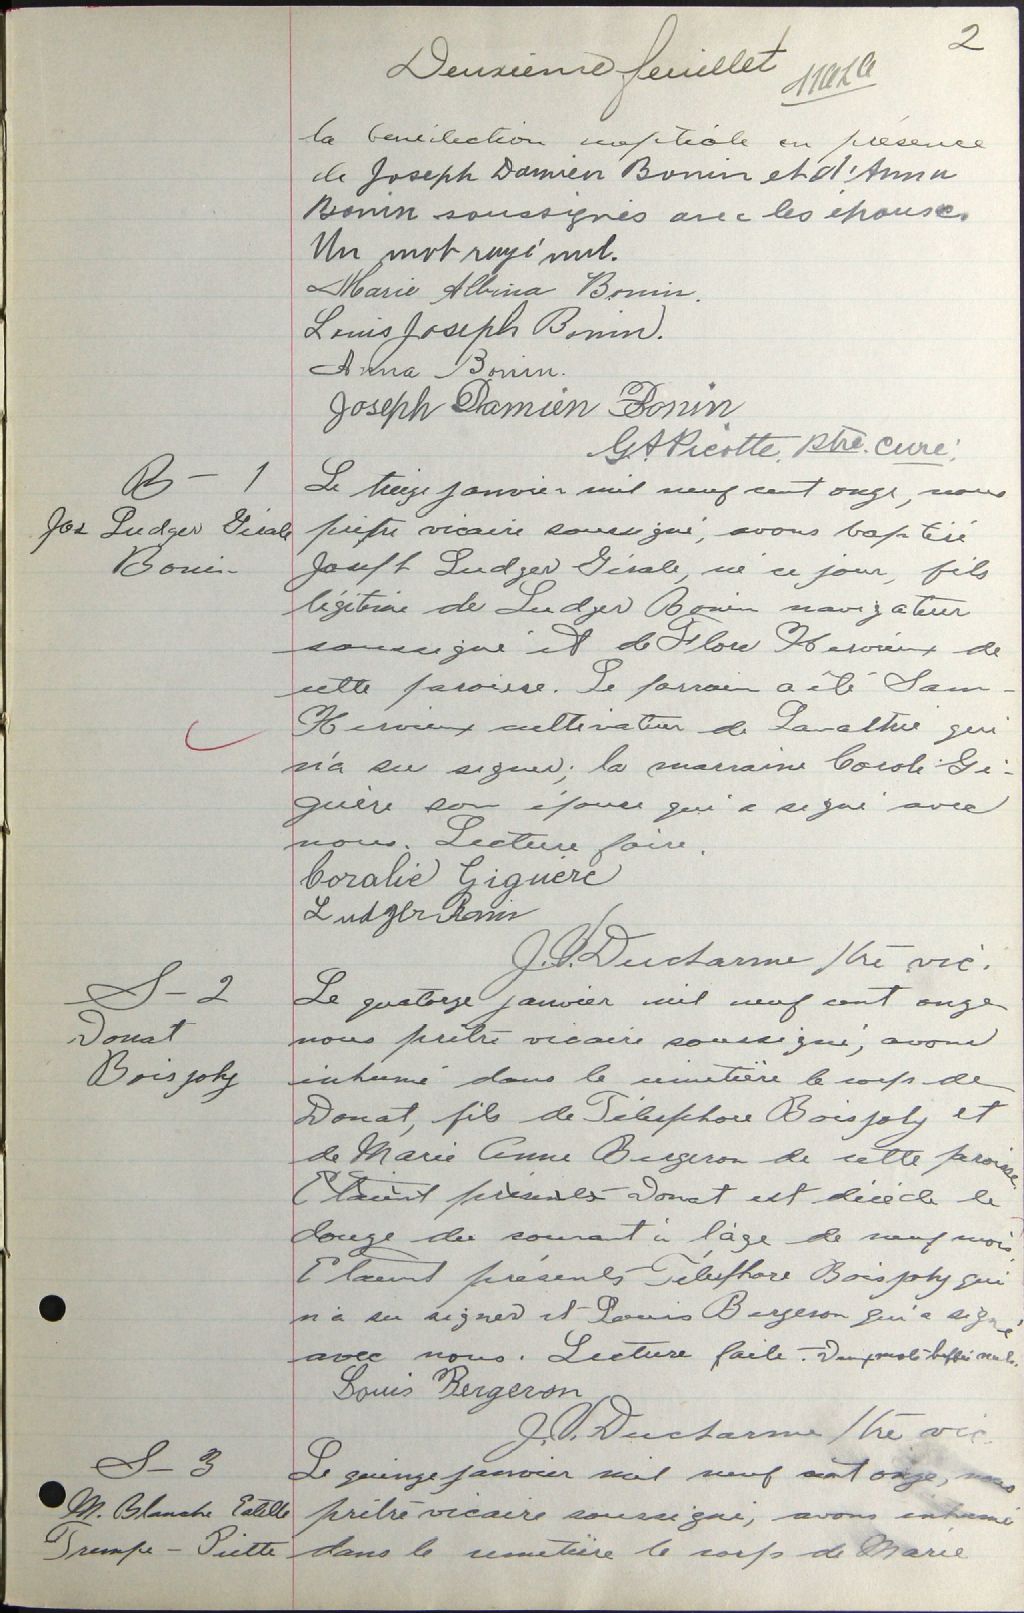 2
Deuxième feuillet
la bénédiction nuptiale en présence
de Joseph Damien Bonin et d'Anna
Bonin soussignés avec les épouses.
Un mot rayé nul.
Marie Albina Bonin.
Louis Joseph Bonin.
Anna Bonin.
Joseph Damien Bonin
G A Picotte, ptre. curé.
B - 1
Jos Ludger Girale
Bonin
Le treize janvier mil neuf cent onze, nous
prêtre vicaire soussigné, avons baptisé
Joseph Ludger Girale, né ce jour, fils
légitime de Ludger Bonin navigateur
soussigné et de Flore Hervieux de
cette paroisse. Le parrain a été Sam
Hervieux cultivateur de Lavaltrie qui
n'a su signer; la marraine Corali Gi-
guère son épouse qui a signé avec
nous. Lecture faire.
Coralie Giguère
Ludger Bonin
J. O. Ducharme ptre vic.
S - 2
Donat
Boisjoly
Le quatorze janvier mil neuf cent onze
nous prêtre vicaire soussigné, avons
inhumé dans le cimetière le corps de
Donat, fils de Télesphore Boisjoly et
de Marie Anne Bergeron de cette paroisse.
Etaient présents Donat est décédé le
douze du courant à l'âge de neuf mois.
Etaient présents Télesphore Boisjoly qui
n'a su signer et Louis Bergeron qui a signé
avec nous. Lecture faite. Deux mots biffés nuls.
Louis Bergeron
J. O. Ducharme ptre vic.
S - 3
M. Blanche Estelle
Trempe - Piette
Le quinze janvier mil neuf cent onze, nous
prêtre vicaire soussigné, avons inhumé
dans le cimetière le corps de Marie